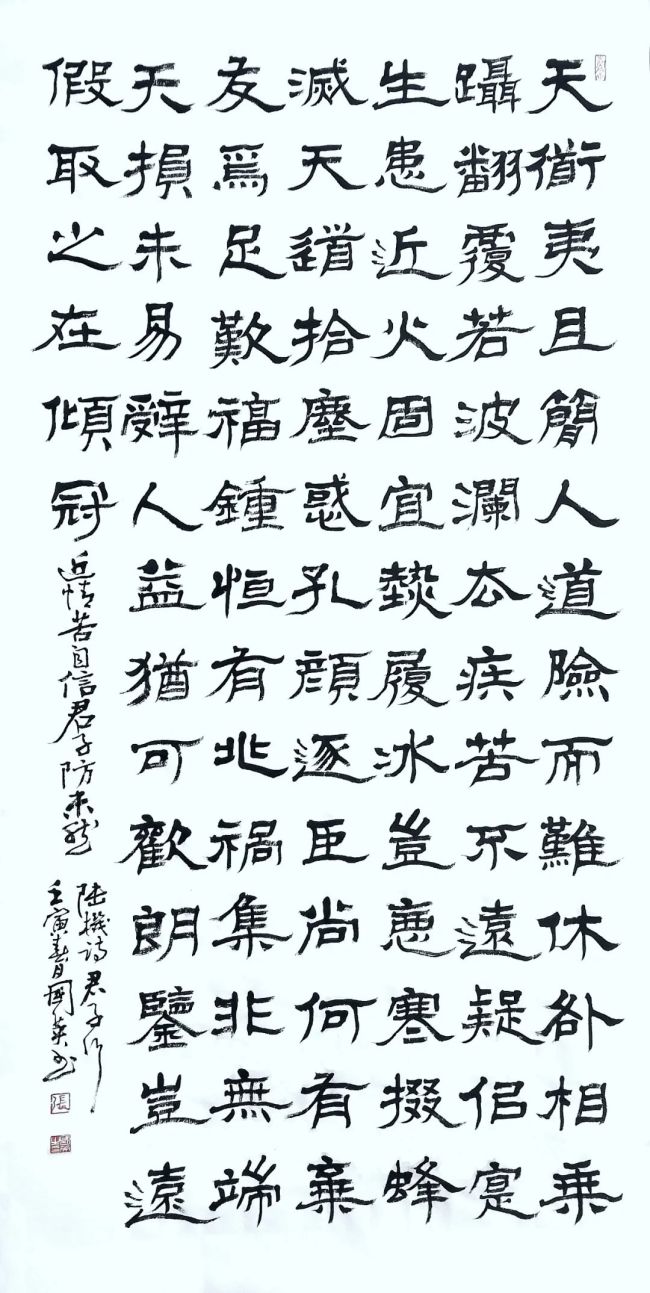 天衜夷且簡人道險而難休咎相乘
躡翻覆若波瀾去疾苦不遠疑佀寔
生患近火固宜熱履冰豈惡寒掇蜂
滅天道拾塵惑孔顏逐臣尚何有棄
友焉足歎福鍾恒有兆禍集非無端
天損未易辭人益猶可歡朗鑒豈遠
假取之在傾冠近情苦自信君子防未然
陸機詩君子行
壬寅春日國英書
張